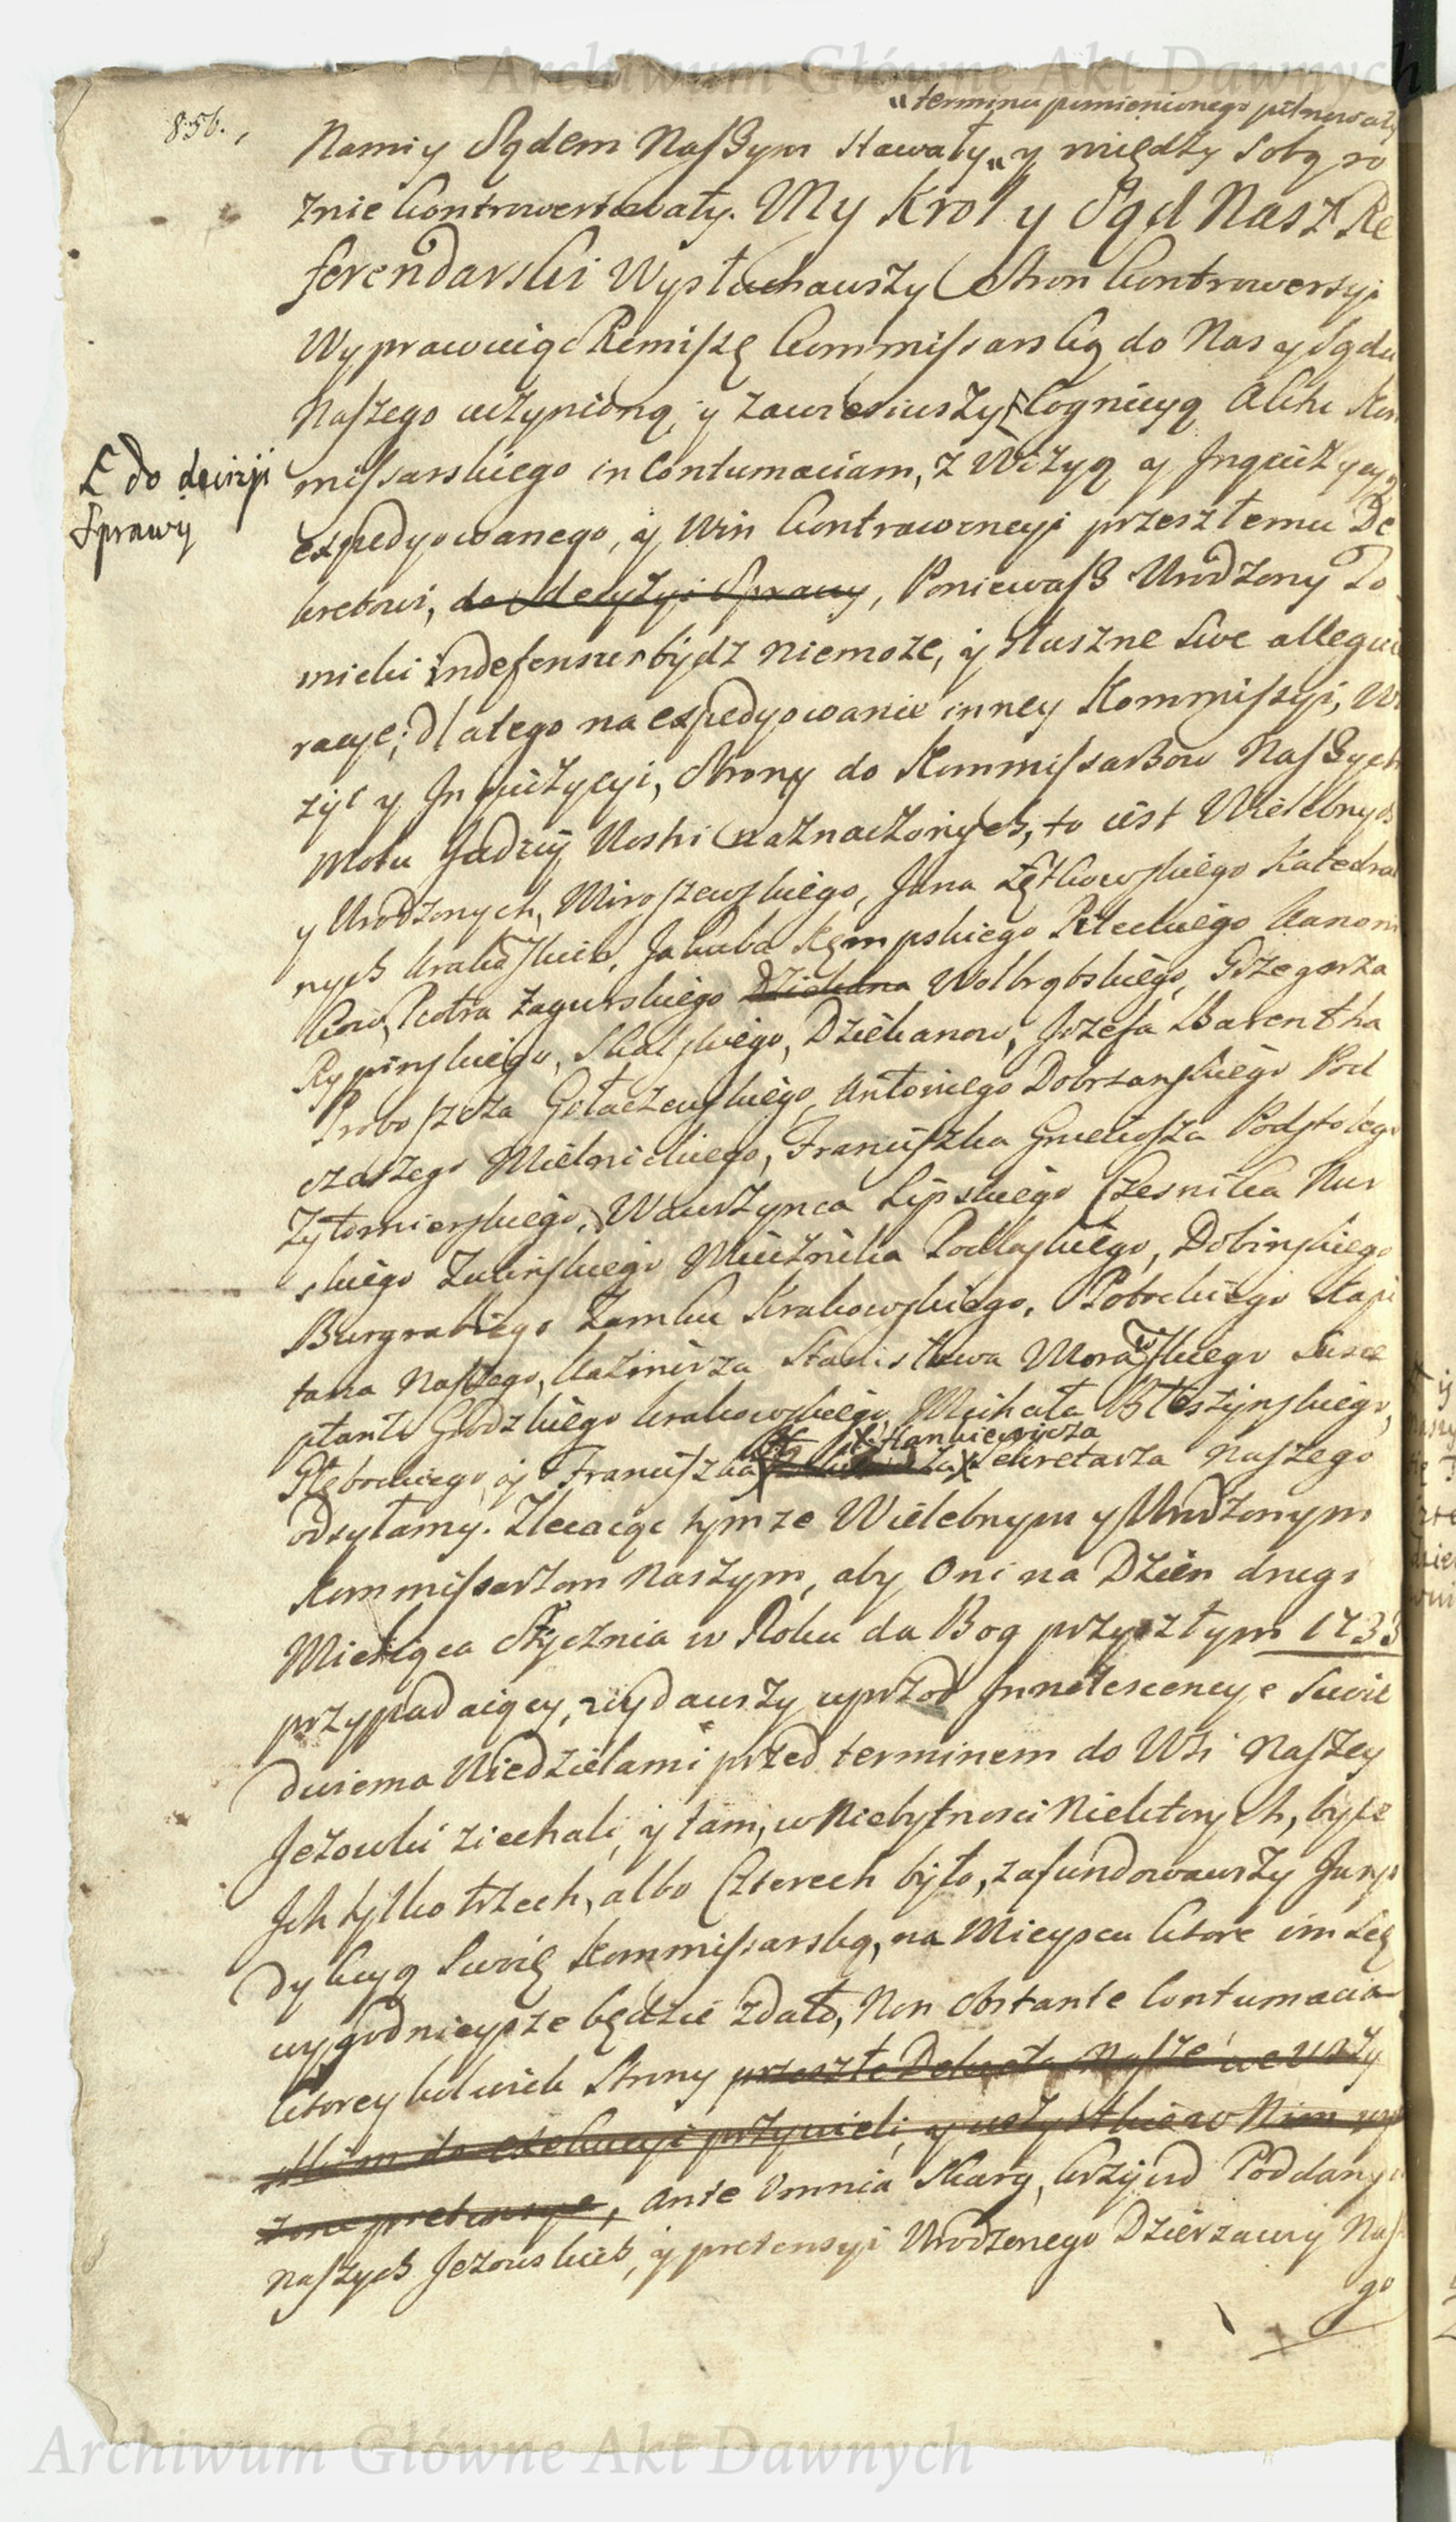 Archiwum Główne Akt Dawnych
856.
"terminu pomienionego pilnowały
Nami y Sądem Naszym stawały „ y między sobą ro
znie kontrowertowały. My Krol y Sąd Nasz Re
ferendarski Wysłuchawszy Stron kontrowersyi
Wyprawuiąc Remissę Kommissarską do Nas y Sądu
Naszego uczynioną, y zawiesiwszy Cognicyą Aktu Kom
missarskiego in Contumaciam, z Wizyą y Inquizycyą
£ do decizji
Sprawy
expedyowanego, y Win kontrawencyi przeszłemu De
kretowi, do decyzyi Sprawy, Poniewasz Urodzony To
micki indefensus bydz niemoze, y słuszne swe allegui
racye; dlatego na expedyowanie inney Kommissyi, Wi
zyi y Inquizycyi, Strony do Kommissarzow Naszych
Motu Nostri naznaczonych, to iest Wielebnych
y Urodzonych, Miroszewskiego, Jana Zętkowskiego Katedral
nych Krakowskich, Jakuba Kępskiego Pileckiego Kanoni
kow, Piotra Zagurskiego Dziekana Wolbrąbskiego, Grzegorza
Rypinskiego, Skalskiego, Dziekanow, Jozefa Barentha
Proboszcza Gołaczewskiego, Antoniego Dobrzanskiego Pod
czaszego Mielnickiego, Franciszka Gniewosza Podstolego
Zytomierskiego, Wawrzynca Lipskiego Czesnika Nur
skiego Miecznika Podlaskiego, Dobinskiego
Burgrabiego Zamku Krakowskiego, Potockiego Kapi
tana Naszego, Kazimierza Stanisława Morawskiego Susce
ptanta Grodzkiego Krakowskiego, Michała Błeszynskiego,
Hankiewicza
Głębockiego, y Franciszka Sekretarza Naszego
odsyłamy. Zlecaiąc tymze Wielebnym y Urodzonym
Kommissarzom Naszym, aby Oni na Dzien drugi
Miesiąca Stycznia w Roku da Bog przyszłym 1733
przypadaiący, wydawszy wprzod Innotescencye swoie
dwiema Niedzielami przed terminem do Wsi Naszey
Jezowki ziechali, y tam, w Niebytnosci Niektorych, byle
Ich tylko trzech, albo Czterech było, zafundowawszy Jurys
dykcyą swoię Kommissarską, na Mieyscu ktore im się
wygodnieysze będzie zdało, Non Obstante Contumacia
ktoreykolwiek Strony przeszłe Dekreta Nasze we wszy
stkim do exekucyi przywiedli, y wszystkie w Nim wyra
zone pretensye, ante Omnia Skarg, krzywd Poddanych
Naszych Jezowskich, y pretensyi Urodzonego Dzierzawcy Nasze
go
Archiwum Główne Akt Dawnych